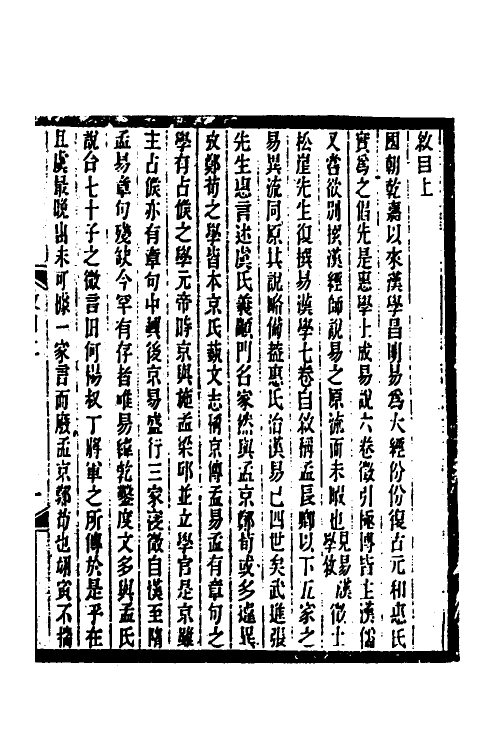 敘目上
國朝乾嘉以來漢學昌明易爲大經份份復古元和惠氏
實爲之倡先是惠學士成易說六卷徵引極博皆主漢儒
又嘗欲別撰漢經師說易之原流而未暇也見易漢學敘徵士
松崖先生復撰易漢學七卷自敘稱孟長卿以下五家之
易異流同原其說略備蓋惠氏治漢易已四世矣武進張
先生惠言述虞氏義顓門名家然與孟京鄭荀或多違異
攷鄭荀之學皆本京氏藝文志稱京傳孟易孟有章句之
學有占候之學元帝時京與施孟梁邱並立學官是京雖
主占候亦有章句中興後京易盛行三家寖微自漢至隋
孟易章句殘缺今罕有存者唯易緯乾鑿度文多與孟氏
說合七十子之微言田何楊叔丁將軍之所傳於是乎在
且虞最晚出未可據一家言而廢孟京鄭荀也胡寅不揣